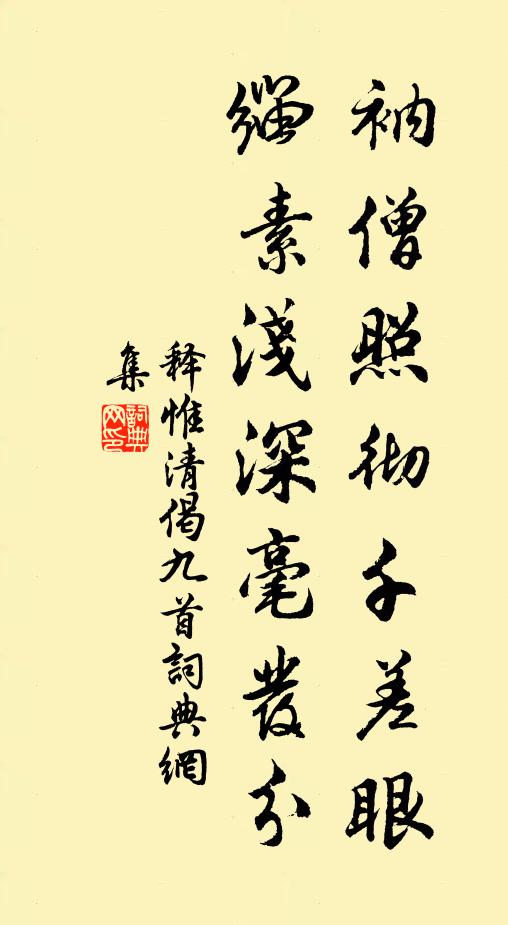 衲僧照彻千差眼
緇素淺深毫發分
释惟清偈九首詞典網
集
詞典网印